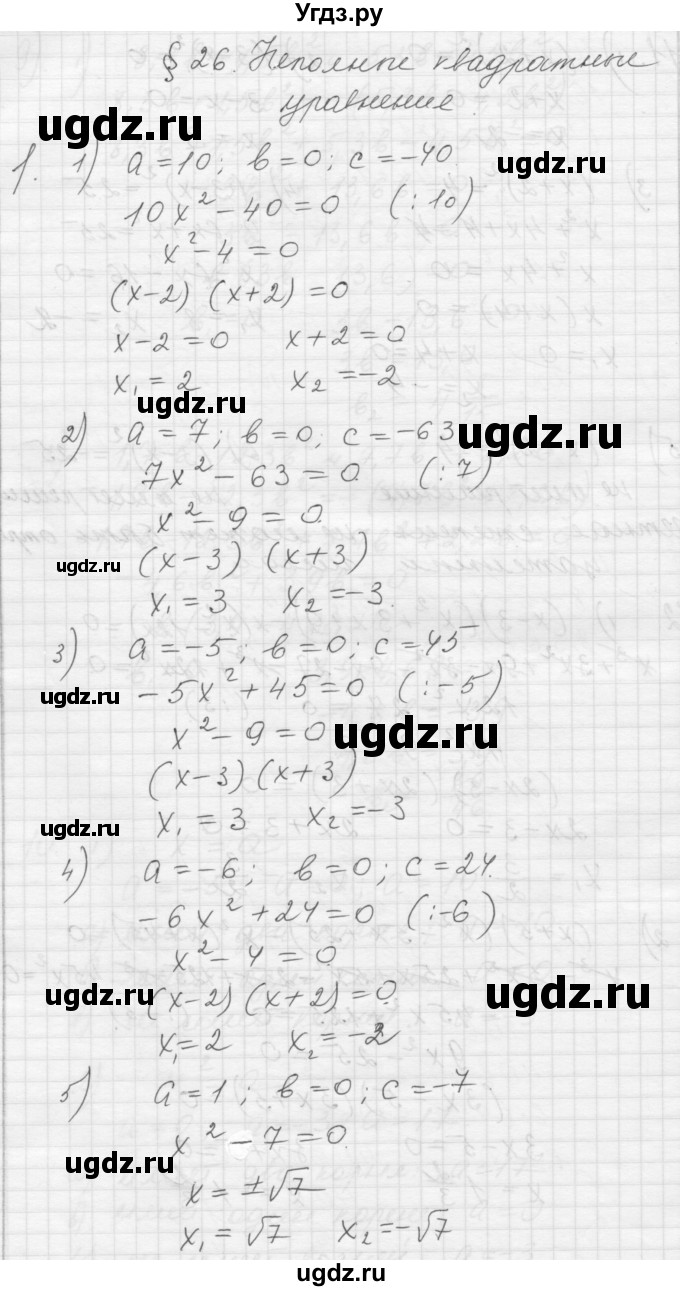 Угдз.ру
§ 26. Неполные квадратные
уравнение
ugdz.ru
1. 1) a = 10; b = 0; c = -40
ugdz.ru
10x² - 40 = 0 (:10)
x² - 4 = 0
(x-2) (x+2) = 0
x - 2 = 0 x + 2 = 0
x₁ = 2 x₂ = -2
ugdz.ru
2) a = 7; b = 0; c = -63
ugdz.ru
7x² - 63 = 0 (:7)
x² - 9 = 0
(x-3) (x+3)
ugdz.ru
x₁ = 3 x₂ = -3.
3) a = -5; b = 0; c = 45
-5x² + 45 = 0 (:-5)
ugdz.ru
x² - 9 = 0
ugdz.ru
(x-3) (x+3)
x₁ = 3 x₂ = -3
ugdz.ru
4) a = -6; b = 0; c = 24.
-6x² + 24 = 0 (:-6)
x² - 4 = 0
ugdz.ru
(x-2) (x+2) = 0
ugdz.ru
x₁ = 2 x₂ = -2
5) a = 1; b = 0; c = -7
x² - 7 = 0
ugdz.ru
x = ±√7
x₁ = √7 x₂ = -√7
ugdz.ru